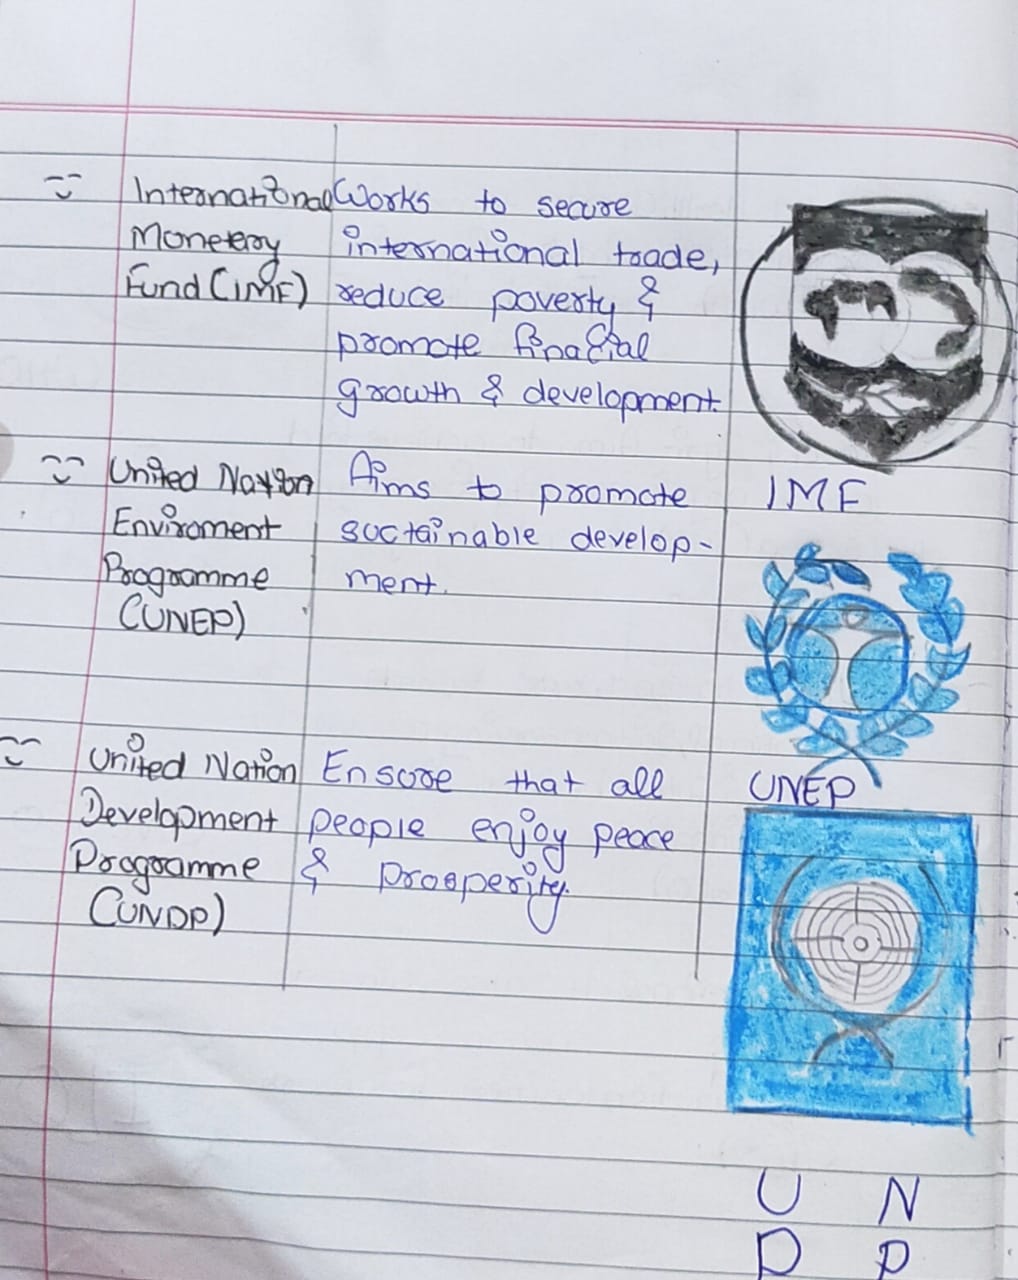 International Works to secure
Monetery international trade,
Fund (IMF) reduce poverty &
promote finacial
growth & development.
IMF
United Nation Aims to promote
Enviroment sustainable develop-
Programme ment.
(UNEP)
UNEP
United Nation Ensure that all
Development people enjoy peace
Programme & Prosperity.
(UNDP)
U N
D P